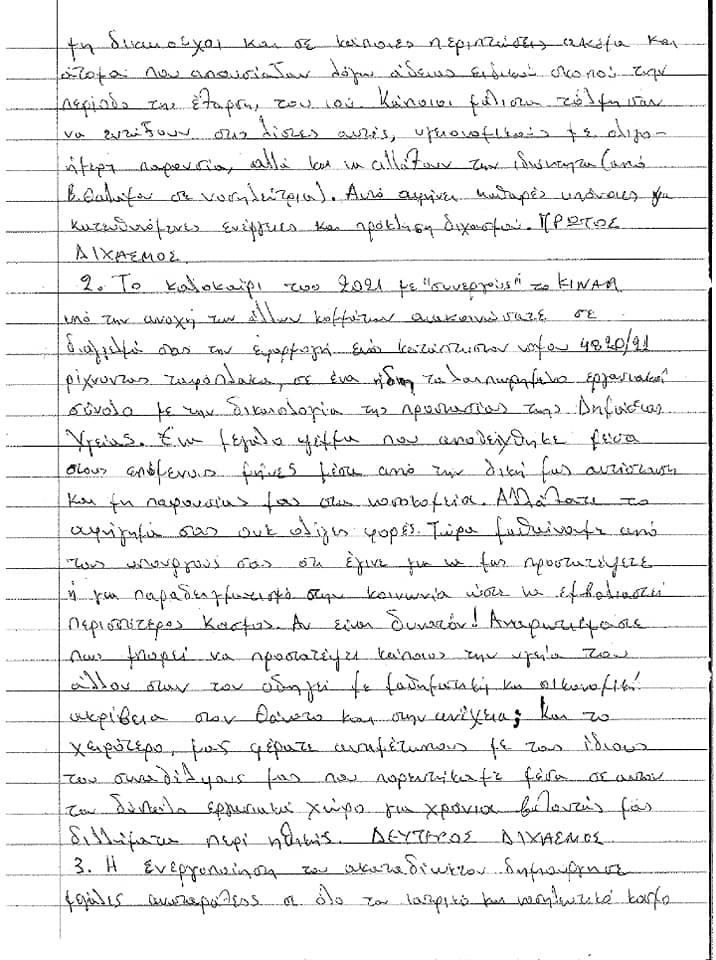 μη δικαιούχοι και σε κάποιες περιπτώσεις ακόμα και
άτομα που απουσίαζαν λόγω άδειας ειδικού σκοπού την
περίοδο της έξαρσης του ιού. Κάποιοι μάλιστα τόλμησαν
να εντάξουν στις λίστες αυτές, υγειονομικούς με ολιγο-
ήμερη παρουσία, αλλά και να αλλάξουν την ιδιότητα (από
β. θαλάμου σε νοσηλεύτρια). Αυτό αφήνει καθαρές υπόνοιες για
κατευθυνόμενες ενέργειες και πρόκληση διχασμού. ΠΡΩΤΟΣ
ΔΙΧΑΣΜΟΣ
2. Το καλοκαίρι του 2021 με "συνεργούς" το ΚΙΝΑΛ
υπό την ανοχή των άλλων κομμάτων ανακοινώσατε σε
διάγγελμά σας την εφαρμογή ενός κατάπτυστου νόμου 4820/21
ρίχνοντας ταφόπλακα, σε ένα ήδη ταλαιπωρημένο εργασιακό
σύνολο με την δικαιολογία της προστασίας της Δημόσιας
Υγείας. Ένα μεγάλο ψέμμα που αποδείχθηκε μέσα
στους επόμενους μήνες μέσα από την δική μας αντίσταση
και μη παρουσίας μας στα νοσοκομεία. Αλλάξατε το
αφήγημά σας ουκ ολίγες φορές. Τώρα μαθαίνουμε από
τους υπουργούς σας ότι έγινε για να μας προστατέψετε
ή για παραδειγματισμό στην κοινωνία ώστε να εμβολιαστεί
περισσότερος κόσμος. Αν είναι δυνατόν! Αναρωτιόμαστε
πως μπορεί να προστατέψει κάποιος την υγεία του
άλλου όταν τον οδηγεί με μαθηματική και οικονομική
ακρίβεια στον θάνατο και στην ανέχεια; Και το
χειρότερο, μας φέρατε αντιμέτωπους με τους ίδιους
τους συναδέλφους μας που πορευτήκαμε μέσα σε αυτόν
τον δύσκολο εργασιακό χώρο για χρόνια βάζοντάς μας
διλλήματα περί ηθικής. ΔΕΥΤΕΡΟΣ ΔΙΧΑΣΜΟΣ
3. Η ενεργοποίηση του ακαταδίωκτου δημιούργησε
σε όλο τον ιατρικό και νοσηλευτικό κόσμο